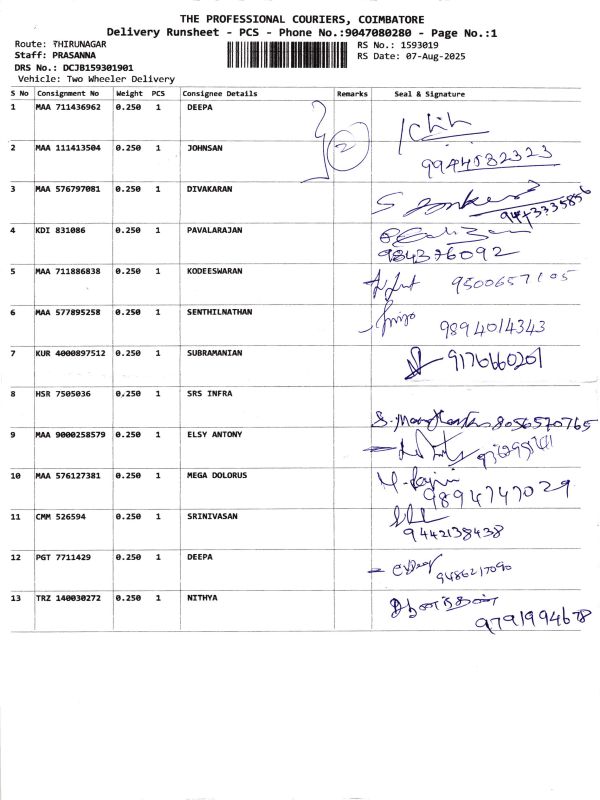 THE PROFESSIONAL COURIERS, COIMBATORE
Delivery Runsheet - PCS - Phone No.:9047080280 - Page No.:1
Route: THIRUNAGAR
RS No.: 1593019
Staff: PRASANNA
RS Date: 07-Aug-2025
DRS No.: DCJB159301901
Vehicle: Two Wheeler Delivery
S No Consignment No Weight PCS Consignee Details Remarks Seal & Signature
1 MAA 711436962 0.250 1 DEEPA
2 MAA 111413504 0.250 1 JOHNSAN 2 9944582323
3 MAA 576797081 0.250 1 DIVAKARAN
4 KDI 831086 0.250 1 PAVALARAJAN 984376092
5 MAA 711886838 0.250 1 KODEESWARAN 9500657105
6 MAA 577895258 0.250 1 SENTHILNATHAN 9894014343
7 KUR 4000897512 0.250 1 SUBRAMANIAN 9176660201
8 HSR 7505036 0,250 1 SRS INFRA 8056570765
9 MAA 9000258579 0.250 1 ELSY ANTONY
10 MAA 576127381 0.250 1 MEGA DOLORUS 9894747029
11 CMM 526594 0.250 1 SRINIVASAN 9442138438
12 PGT 7711429 0.250 1 DEEPA 9486217090
13 TRZ 140030272 0.250 1 NITHYA ஆனந்தன் 9791994678